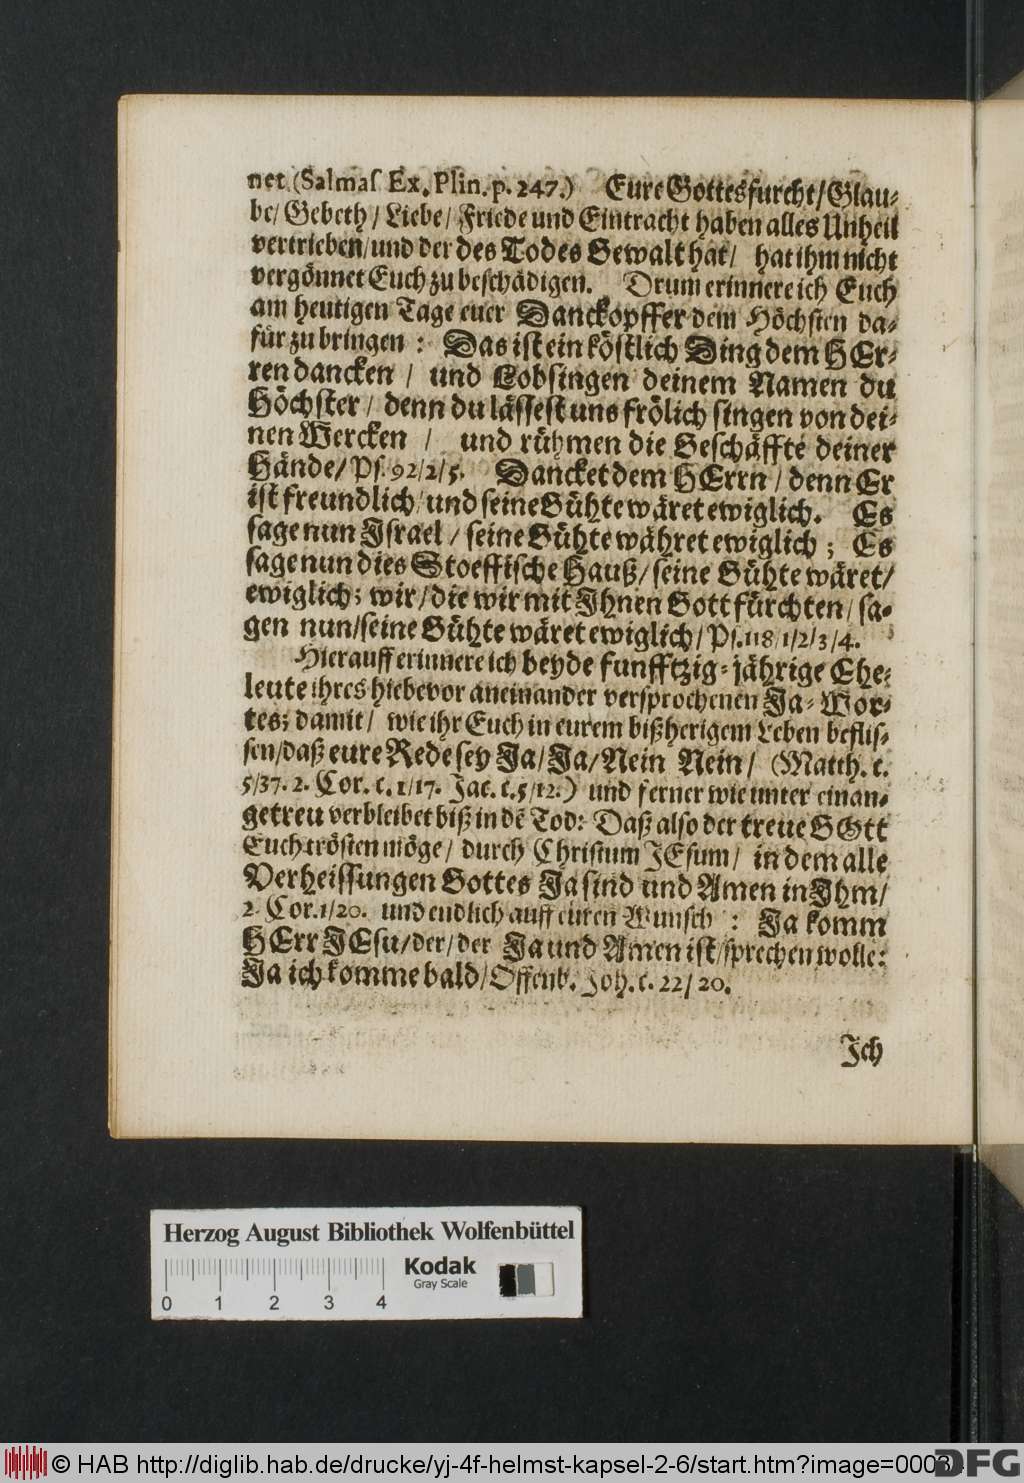 net (Salmas Ex. Plin. p. 247.) Eure Gottesfurcht/ Glau-
be/ Gebeth/ Liebe/ Friede und Eintracht haben alles Unheil
vertrieben/ und der des Todes Gewalt hat/ hat ihm nicht
vergönnet Euch zu beschädigen. Drum erinnere ich Euch
am heutigen Tage euer Danckopffer dem Höchsten da-
für zu bringen: Das ist ein köstlich Ding dem HEr-
ren dancken / und Lobsingen deinem Namen du
Höchster / denn du lässest uns frölich singen von dei-
nen Wercken / und rühmen die Geschäffte deiner
Hände/ Ps. 92/2/5. Dancket dem HErrn / denn Er
ist freundlich/ und seine Gühte wäret ewiglich. Es
sage nun Israel / seine Gühte währet ewiglich; Es
sage nun dies Stoeffische Hauß/ seine Gühte wäret/
ewiglich; wir/ die wir mit Ihnen Gott fürchten/ sa-
gen nun/ seine Gühte wäret ewiglich/ Ps. 118/1/2/3/4.
Hierauff erinnere ich beyde funfftzig-jährige Ehe-
leute ihres hiebevor aneinander versprochenen Ja-Wor-
tes; damit/ wie ihr Euch in eurem bißherigem Leben beflis-
sen/ daß eure Rede sey Ja/ Ja/ Nein Nein/ (Matth. c.
5/37. 2. Cor. c. 1/17. Jac. c. 5/12.) und ferner wie unter einan-
getreu verbleibet biß in dē Tod: Daß also der treue GOtt
Euch trösten möge/ durch Christum JEsum/ in dem alle
Verheissungen Gottes Ja sind und Amen in Ihm/
2. Cor. 1/20. und endlich auff euren Wunsch: Ja komm
HErr JEsu/ der/ der Ja und Amen ist/ sprechen wolle:
Ja ich komme bald/ Offenb. Joh. c. 22/20.
Ich
Herzog August Bibliothek Wolfenbüttel
Kodak
Gray Scale
0 1 2 3 4
© HAB http://diglib.hab.de/drucke/yj-4f-helmst-kapsel-2-6/start.htm?image=0003
DFG